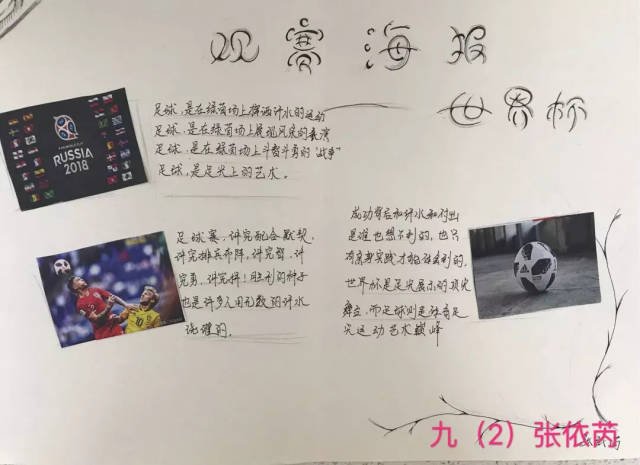 观赛海报
世界杯
RUSSIA
2018
足球，是在绿茵场上挥洒汗水的运动
足球，是在绿茵场上展现风采的表演
足球，是在绿茵场上斗智斗勇的“战争”
足球，是足尖上的艺术。
足球赛，讲究配合默契，
讲究排兵布阵，讲究智，讲
究勇，讲究拼！胜利的种子
也是许多人用无数的汗水
浇灌的。
成功背后和汗水和付出
是谁也想不到的，也只
有亲身实践才能体会到的，
世界杯是足尖展示的顶尖
舞台，而足球则是体育足
尖运动艺术巅峰
adidas
九（2）张依芮